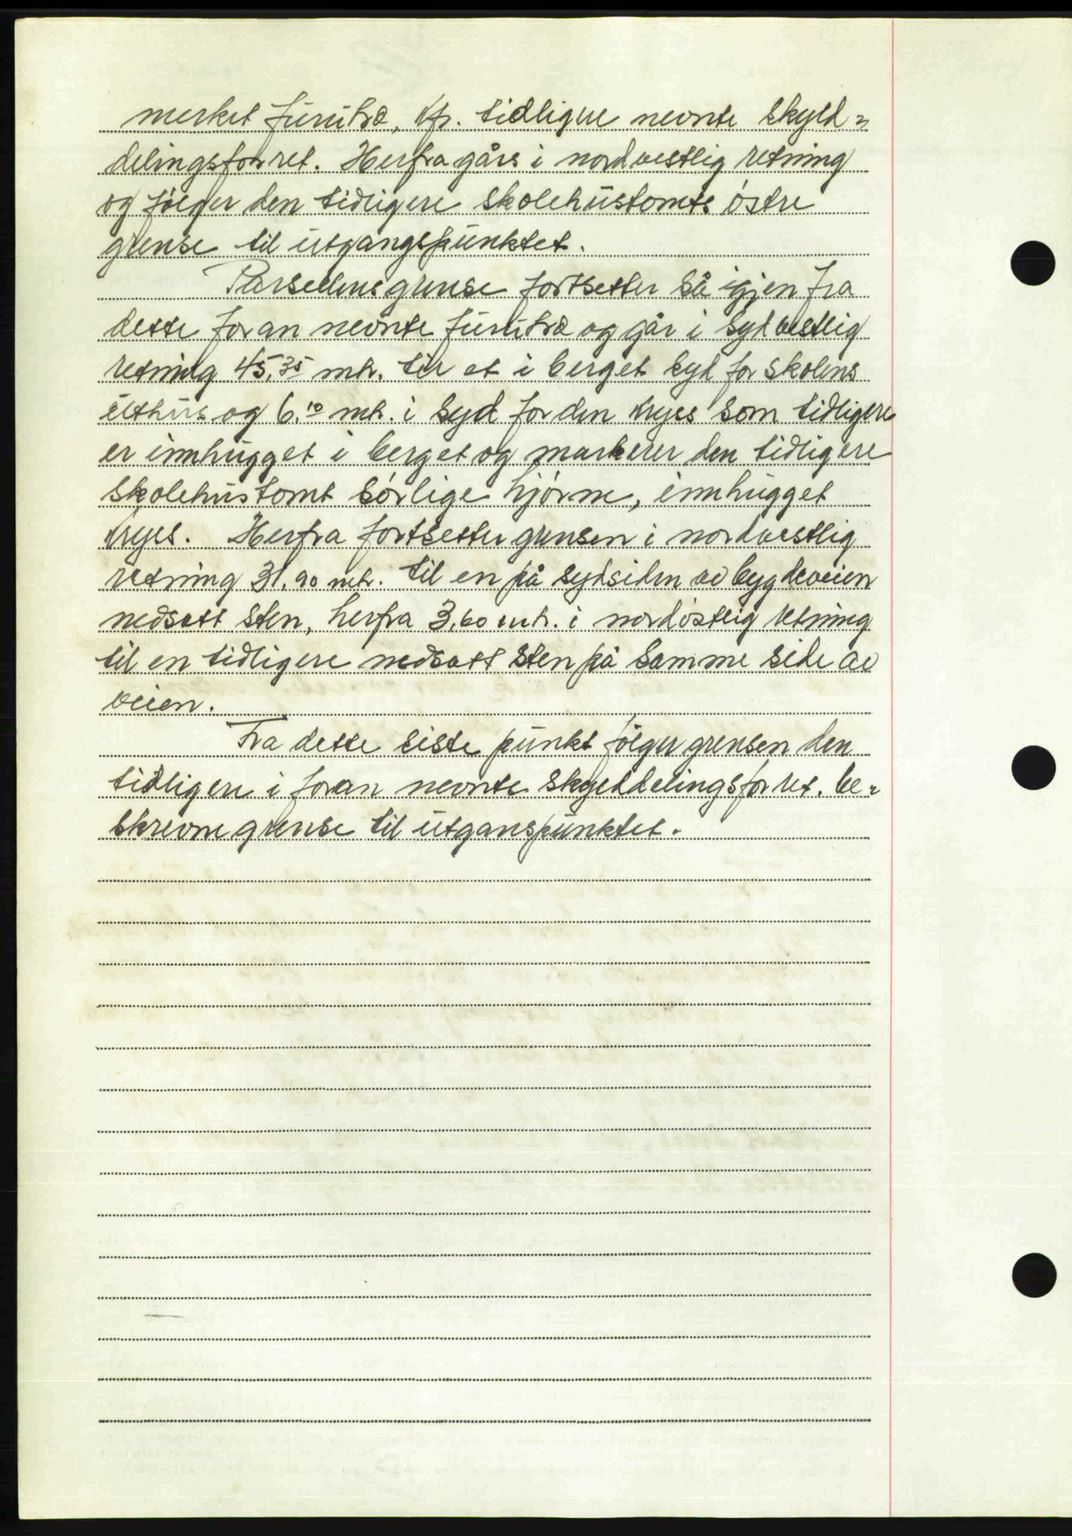 merket furutræ, kfr. tidligere nevnte skyld=
delingsforret. Herfra gårs i nordvestlig retning
og følger den tidligere skolehustomts østre
grense til utgangspunktet.
Parsellens grense fortsetter så igjen fra
dette foran nevnte furutræ og går i sydvestlig
retning 45,35 mtr. til et i berget syd for skolens
uthus og 6.10 mtr. i syd for den kryss som tidligere
er innhugget i berget og markerer den tidligere
skolehustomt sørlige hjørne, innhugget
kryss. Herfra fortsetter grensen i nordvestlig
retning 31,90 mtr. til en på sydsiden av bygdeveien
nedsatt sten, herfra 3,60 mtr. i nordøstlig retning
til en tidligere nedsatt sten på samme side av
veien.
Fra dette siste punkt følger grensen den
tidligere i foran nevnte skylddelingsforret. be=
skrevne grense til utganspunktet.